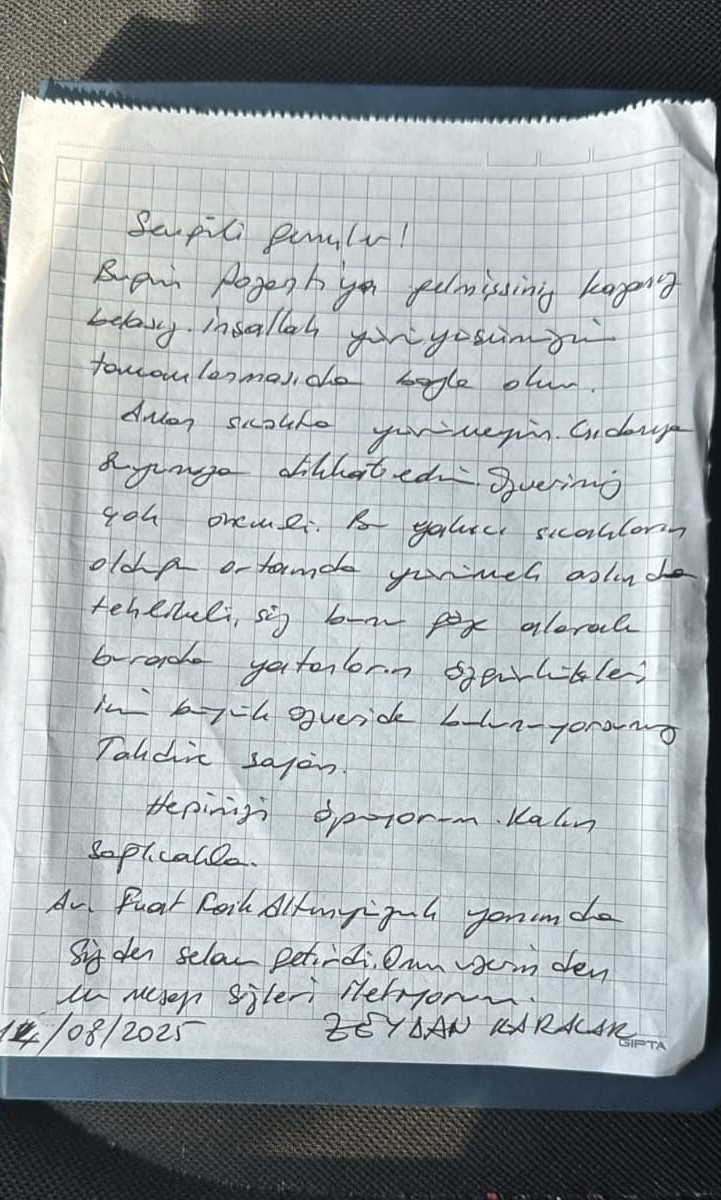 Sevgili gençler!
Bugün Pozantı'ya gelmişsiniz kazasız
belasız. İnşallah yürüyüşünüzün
tamamlanması da böyle olur.
Aman sıcakta yürümeyin. Gıdanıza
suyunuza dikkat edin.
çok önemli. Bu yakıcı sıcakların
olduğu ortamda yürümek aslında
tehlikeli, siz bunu göze alarak
burada yatanların özgürlükleri
için büyük özveride bulunuyorsunuz
Takdire şayan.
Hepinizi öpüyorum. Kalın
sağlıcakla.
Av. Fuat yanımda
Sizden selam getirdi. Onun üzerinden
bu mesajı sizlere iletiyorum.
14/08/2025 ZEYDAN KARALAR
GIPTA